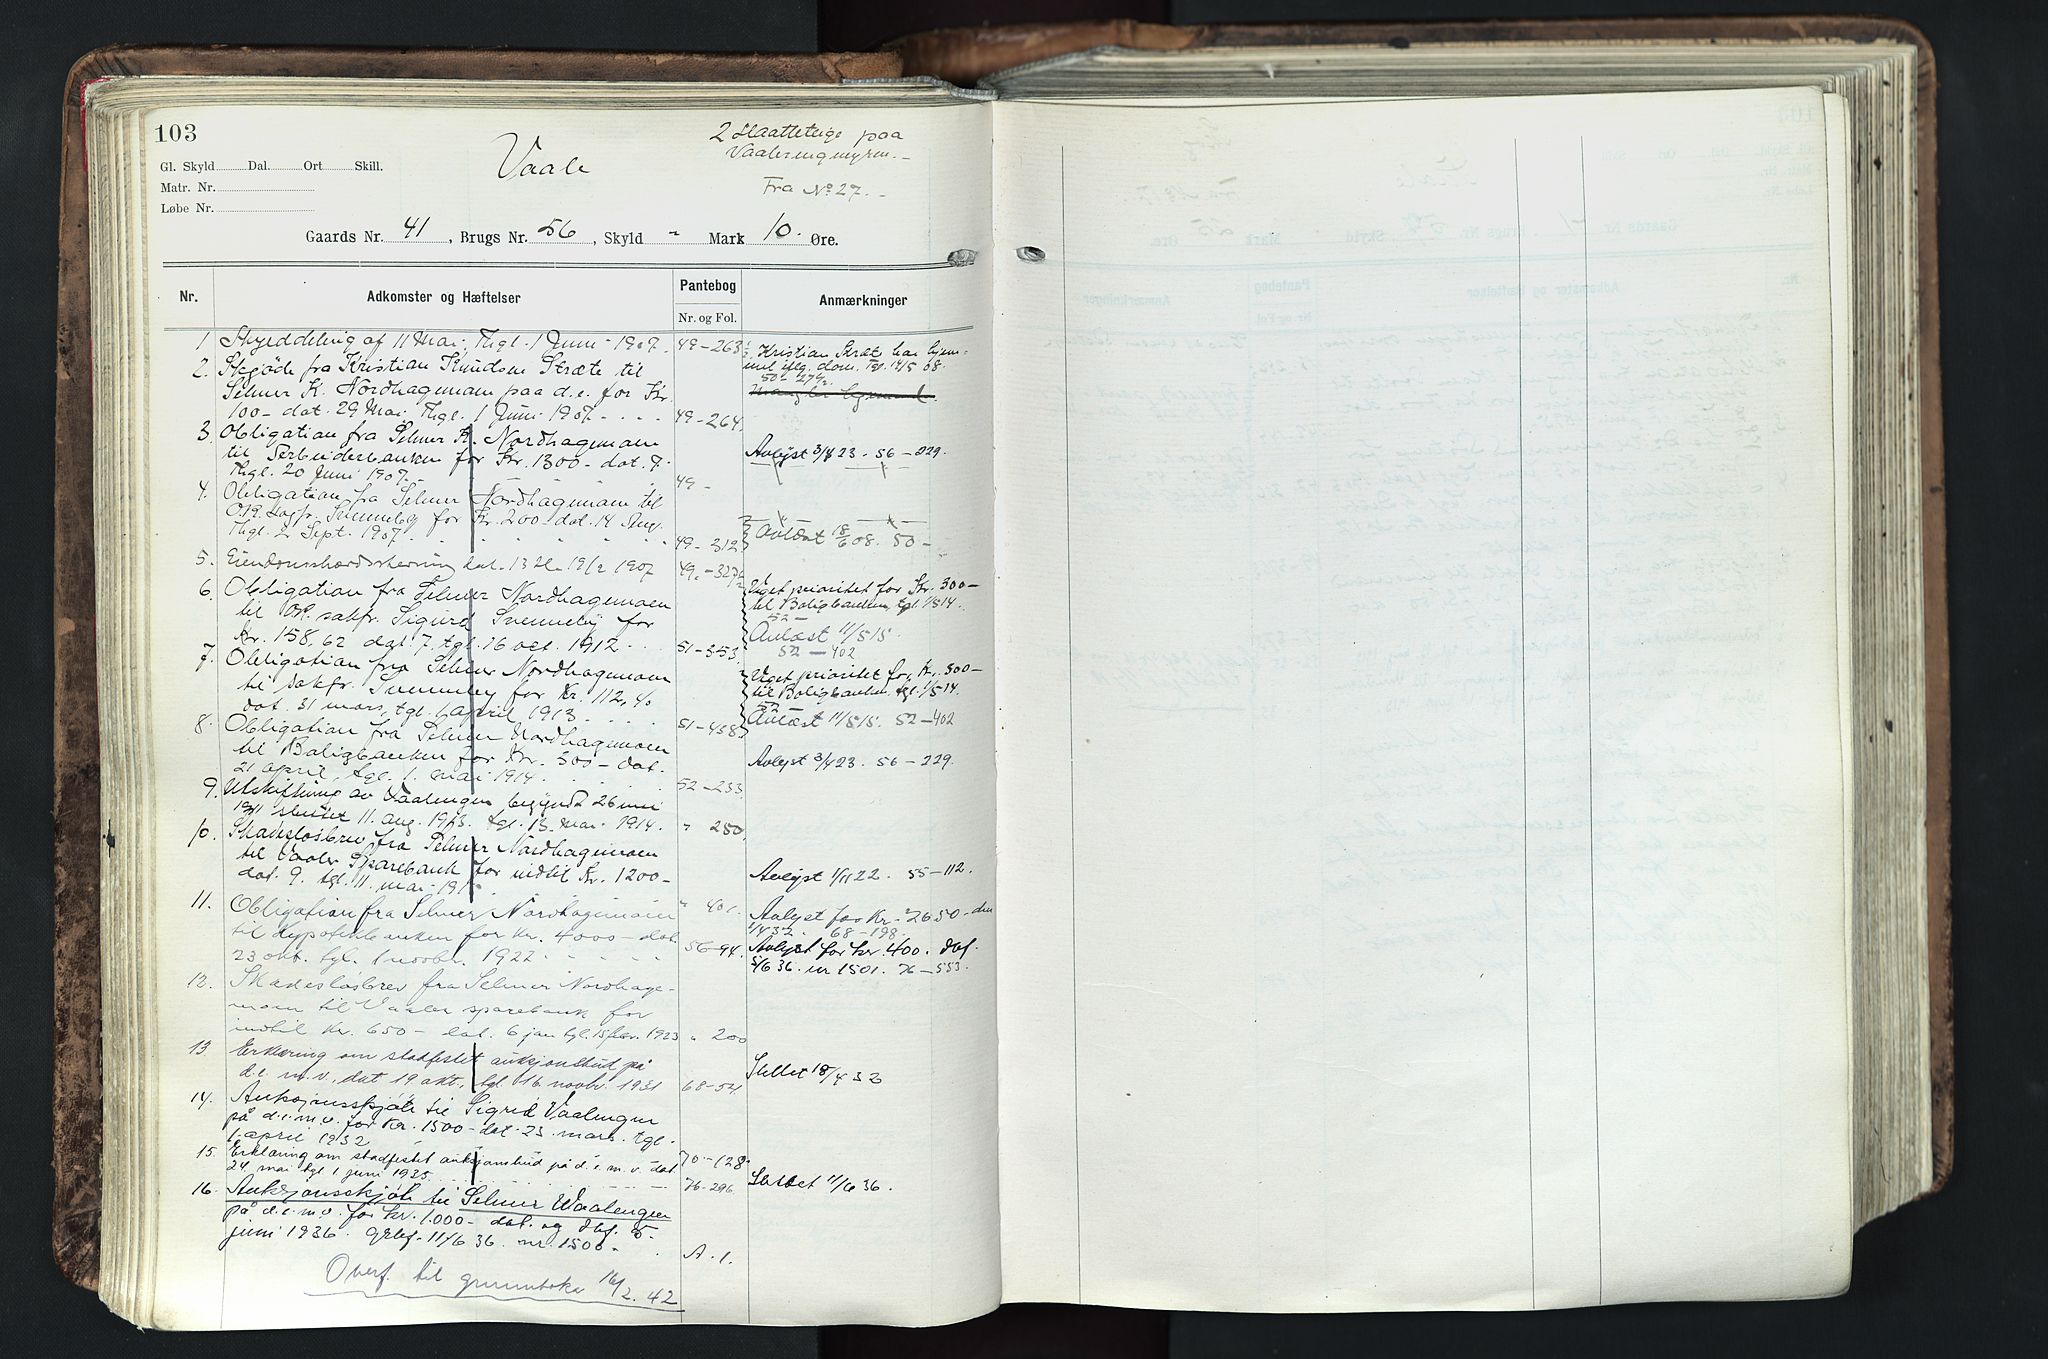 103
Vaale
2 Slaatteteige paa
Vaalerengmyren. -
Fra No 27. -
Gl. Skyld Dal. Ort Skill.
Matr. Nr.
Løbe Nr.
Gaards Nr. 41, Brugs Nr. 56, Skyld - Mark 10. Øre.
Nr. Adkomster og Hæftelser Pantebog Anmærkninger
Nr. og Fol.
1 Skylddeling af 11 Mai, Thgl. 1 Juni 1907. 49-263
2. Skjøde fra Kristian Knudsen Stræte til
Selmer K. Nordhagemoen paa d.e. for Kr.
100- dat. 29 Mai, Thgl. 1 Juni 1907. 49-264
Kristian Stræt har hjem-
mel iflg. dom. Tgl. 14/5 08.
50- 274
Mangler hjemmel.
3. Obligation fra Selmer K. Nordhagemoen
til Arbeiderbanken for Kr. 1300- dat. 7.
Thgl. 20 Juni 1907. 49 -
Avlyst 3/4 23. 56-229.
4. Obligation fra Selmer Nordhagemoen til
O.R. Sagfr. Svenneby for Kr. 200- dat. 14 Aug.
Thgl. 2 Sept. 1907. 49-312
Avlæst 18/6 08. 50-
5. Eiendomsbordskrivning dat. 13 19/12 1907 49-327
6. Obligation fra Selmer Nordhagemoen
til O.R. sakfr. Sigurd Svenneby for
Kr. 158,62 dat. 7. tgl. 16 oct. 1912 51-353
Veget prioritet for Kr. 300-
til Boligbanken, tgl. 1/5 14.
52-
Avlæst 11/5 15.
52-402
7. Obligation fra Selmer Nordhagemoen
til sakfr. Svenneby for Kr. 112,40
dat. 31 mars, tgl. 1 april 1913 51-458
Veget prioritet for Kr. 300-
til Boligbanken, tgl. 1/5 14.
52-
Avlæst 11/5 15. 52-402
8. Obligation fra Selmer Nordhagemoen
til Boligbanken for Kr. 300- dat.
21 april, tgl. 1. mai 1914. 52-233
Avlyst 3/4 23. 56-229.
9. Utskiftning av Vaalengen begyndt 26
1911 sluttet 11. aug. 1913. tgl. 13. mai 1914. " 250
10. Skadesløsbrev fra Selmer Nordhagemoen
til Vaaler Sparebank for indtil Kr. 1200-
dat. 9. tgl. 11. mai 191 " 401.
Avlyst 1/11 22. 55-112.
11. Obligation fra Selmer Nordhagemoen
til Hypotekbanken for Kr. 4000- dat.
23 okt. tgl. 1 novbr. 1922 56-94.
Avlyst for Kr. 2650- den
1/4 32. 68-198.
Avlyst for kr. 400. dbf.
5/6 36. nr 1501. 76-553.
12. Skadesløsbrev fra Selmer Nordhage-
moen til Vaaler sparebank for
indtil Kr. 650- dat. 6 jan tgl. 15 febr. 1923 " 200
13. Erklæring om stadfestet auksjonsbud på
d.e. m.v., dat 19 okt., tgl. 16 novbr. 1931 68-54
Slettet 18/4 32
14. Auksjonsskjøte til Sigrid Vaalengen
på d.e.m.v. for Kr. 1500- dat. 23. mars. tgl.
1 april 1932 70-128
15. Erklæring om stadfestet auksjonsbud på d.e. m.v. dat.
24 mai tgl 1 juni 1935. 76-296
Slettet 11/6 36.
16. Auksjonsskjøte til Selmer Vaalengen
på d.e.m.v. for kr. 1.000- dat. og dbf. 5-
juni 1936. Grbf. 11/6 36. nr. 1500- A. 1.
Overf. til grunnboka 16/2. 42